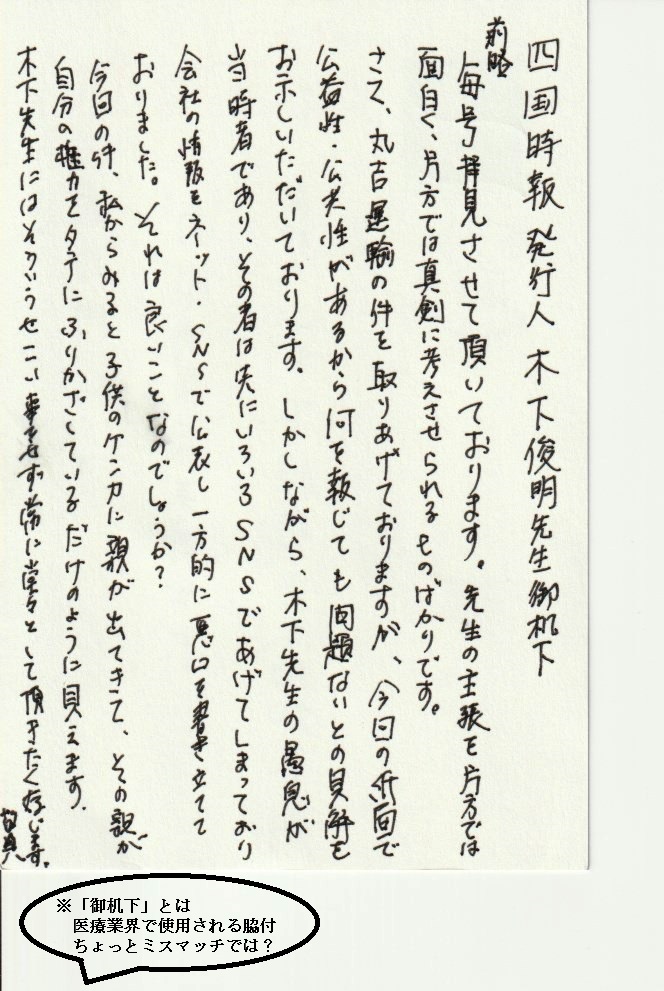 四国時報 発行人 木下俊明先生御机下
前略
毎号拝見させて頂いております。先生の主張を片方では
面白く、片方では真剣に考えさせられるものばかりです。
さて、丸吉運輸の件を取りあげておりますが、今回の紙面で
公益性・公共性があるから何を報じても問題ないとの見解を
お示しいただいております。しかしながら、木下先生の愚息が
当時者であり、その者は先にいろいろSNSであげてしまっており
会社の情報をネット・SNSで公表し一方的に悪口を書き立てて
おりました。それは良いことなのでしょうか?
今回の件、私からみると子供のケンカに親が出てきて、その親が
自分の権力をタテにふりかざしているだけのように見えます。
木下先生にはそういうせこい事をせず常に堂々として頂きたく存じます。
※「御机下」とは
医療業界で使用される脇付
ちょっとミスマッチでは?